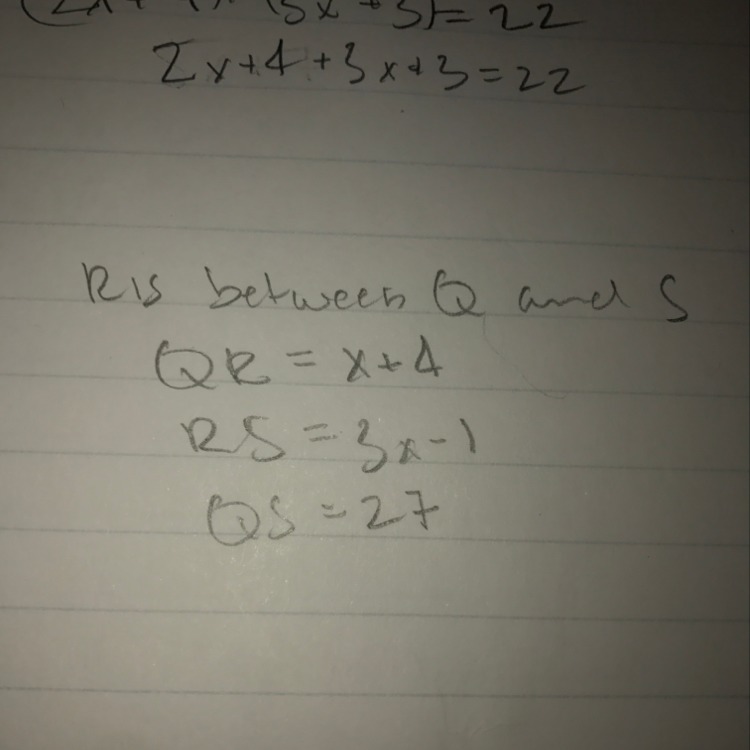 3x+3)=22
2x+4+3x+3=22
R is between Q and S
QR=x+4
RS=3x-1
QS=27